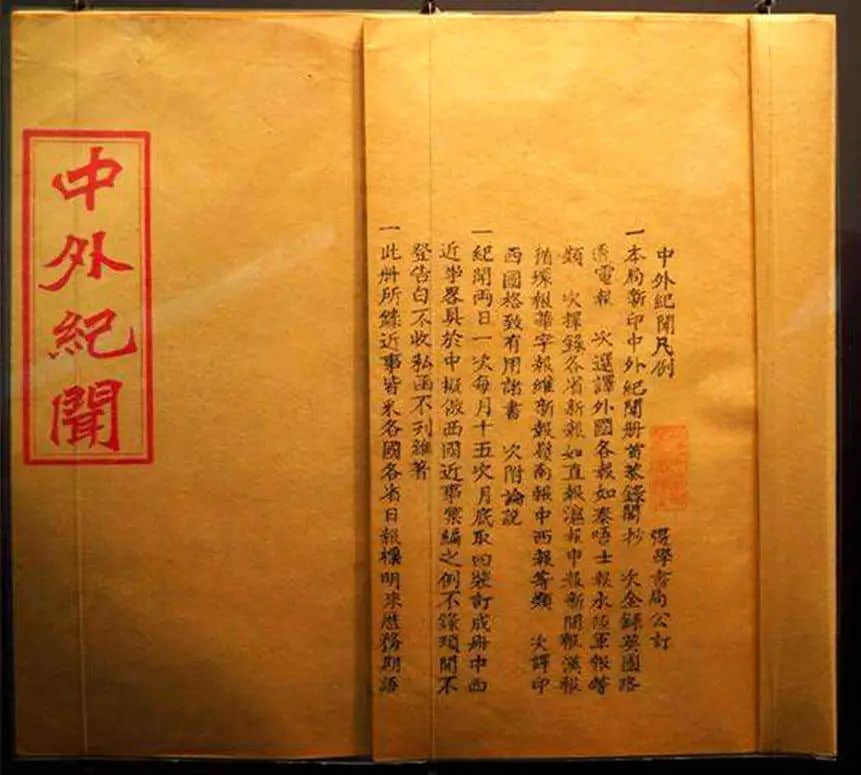 中外紀聞
中外紀聞凡例 強學書局公訂
一本局新印中外紀聞册首恭錄閣抄 次全錄英國路
透電報 次選譯外國各報如泰晤士報水陸軍報等
類 次擇錄各省新報如直報滬報申報新聞報漢報
循環報華字報維新報嶺南報中西報等類 次譯印
西國格致有用諸書 次附論說
一紀聞兩日一次每月十五次月底取回裝訂成册中西
近事畧具於中擬倣西國近事彙編之例不錄瑣聞不
登告白不收私函不列雜著
一此册所錄近事皆采各國各省日報標明來歷務期語